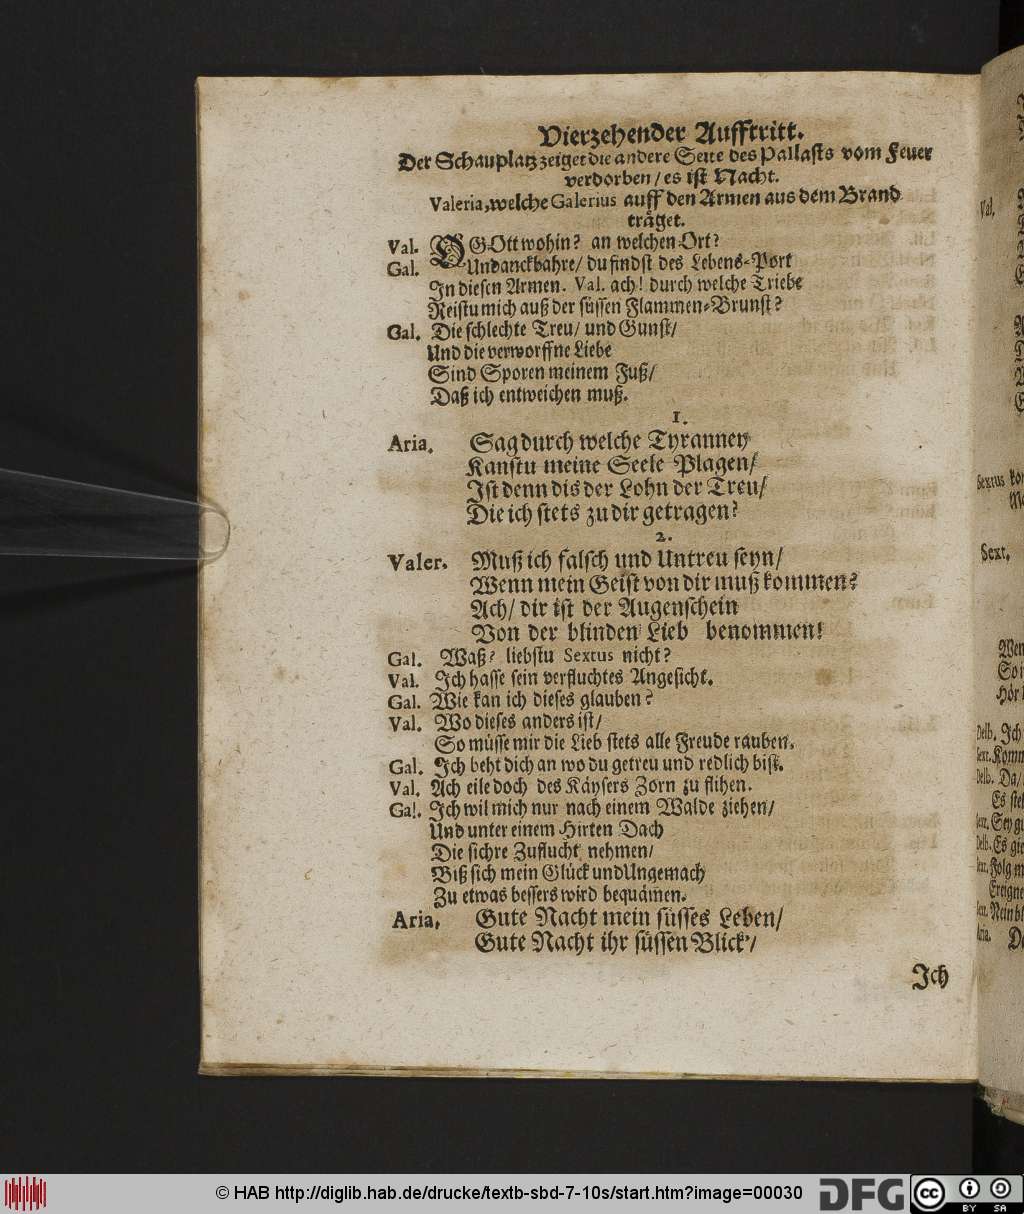 Vierzehender Aufftritt.
Der Schauplatz zeiget die andere Seite des Pallasts vom Feuer
verdorben / es ist Nacht.
Valeria, welche Galerius auff den Armen aus dem Brand
träget.
Val. O GOtt wohin? an welchen Ort?
Gal. Undanckbahre / du findst des Lebens-Port
In diesen Armen. Val. ach! durch welche Triebe
Reistu mich auß der süssen Flammen-Brunst?
Gal. Die schlechte Treu / und Gunst /
Und die verworffne Liebe
Sind Sporen meinem Fuß /
Daß ich entweichen muß.
1.
Aria. Sag durch welche Tyranney
Kanstu meine Seele Plagen /
Ist denn dis der Lohn der Treu /
Die ich stets zu dir getragen?
2.
Valer. Muß ich falsch und Untreu seyn /
Wenn mein Geist von dir muß kommen?
Ach / dir ist der Augenschein
Von der blinden Lieb benommen!
Gal. Waß? liebstu Sextus nicht?
Val. Ich hasse sein verfluchtes Angesicht.
Gal. Wie kan ich dieses glauben?
Val. Wo dieses anders ist /
So müsse mir die Lieb stets alle Freude rauben.
Gal. Ich beht dich an wo du getreu und redlich bist.
Val. Ach eile doch des Käysers Zorn zu flihen.
Gal. Ich wil mich nur nach einem Walde ziehen /
Und unter einem Hirten Dach
Die sichre Zuflucht nehmen /
Biß sich mein Glück und Ungemach
Zu etwas bessers wird bequämen.
Aria. Gute Nacht mein süsses Leben /
Gute Nacht ihr süssen Blick' /
Ich
Val.
Sextus
Sext.
Wen
So i
Hör
Delb. Ich
Sext. Komm
Delb. Da /
Es stel
Sext. Sey gu
Delb. Es gie
Sext. Folg m
Ereigne
Sext. Nein bl
Aria. De
© HAB http://diglib.hab.de/drucke/textb-sbd-7-10s/start.htm?image=00030
DFG
cc BY SA